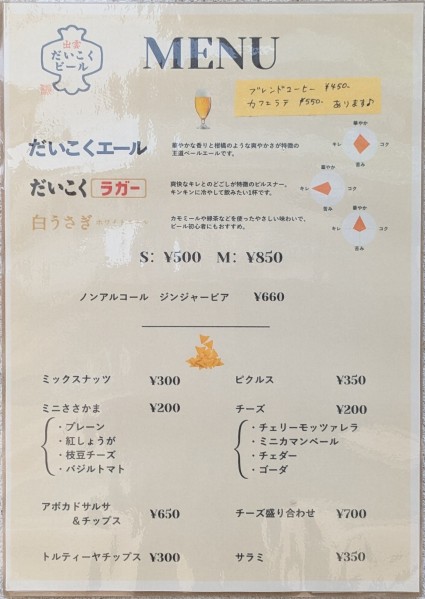 出雲
だいこく
ビール
MENU
ブレンドコーヒー ¥450.
カフェラテ ¥550. あります♪
だいこくエール
華やかな香りと柑橘のような爽やかさが特徴の
王道ペールエールです。
華やか
キレ
コク
苦み
だいこく ラガー
爽快なキレとのどごしが特徴のピルスナー。
キンキンに冷やして飲みたい1杯です。
華やか
キレ
コク
苦み
白うさぎ ホワイトエール
カモミールや緑茶などを使ったやさしい味わいで、
ビール初心者にもおすすめ。
華やか
キレ
コク
苦み
S: ¥500 M: ¥850
ノンアルコール ジンジャービア ¥660
ミックスナッツ ¥300
ピクルス ¥350
ミニささかま ¥200
・プレーン
・紅しょうが
・枝豆チーズ
・バジルトマト
チーズ ¥200
・チェリーモッツァレラ
・ミニカマンベール
・チェダー
・ゴーダ
アボカドサルサ
&チップス ¥650
チーズ盛り合わせ ¥700
トルティーヤチップス ¥300
サラミ ¥350